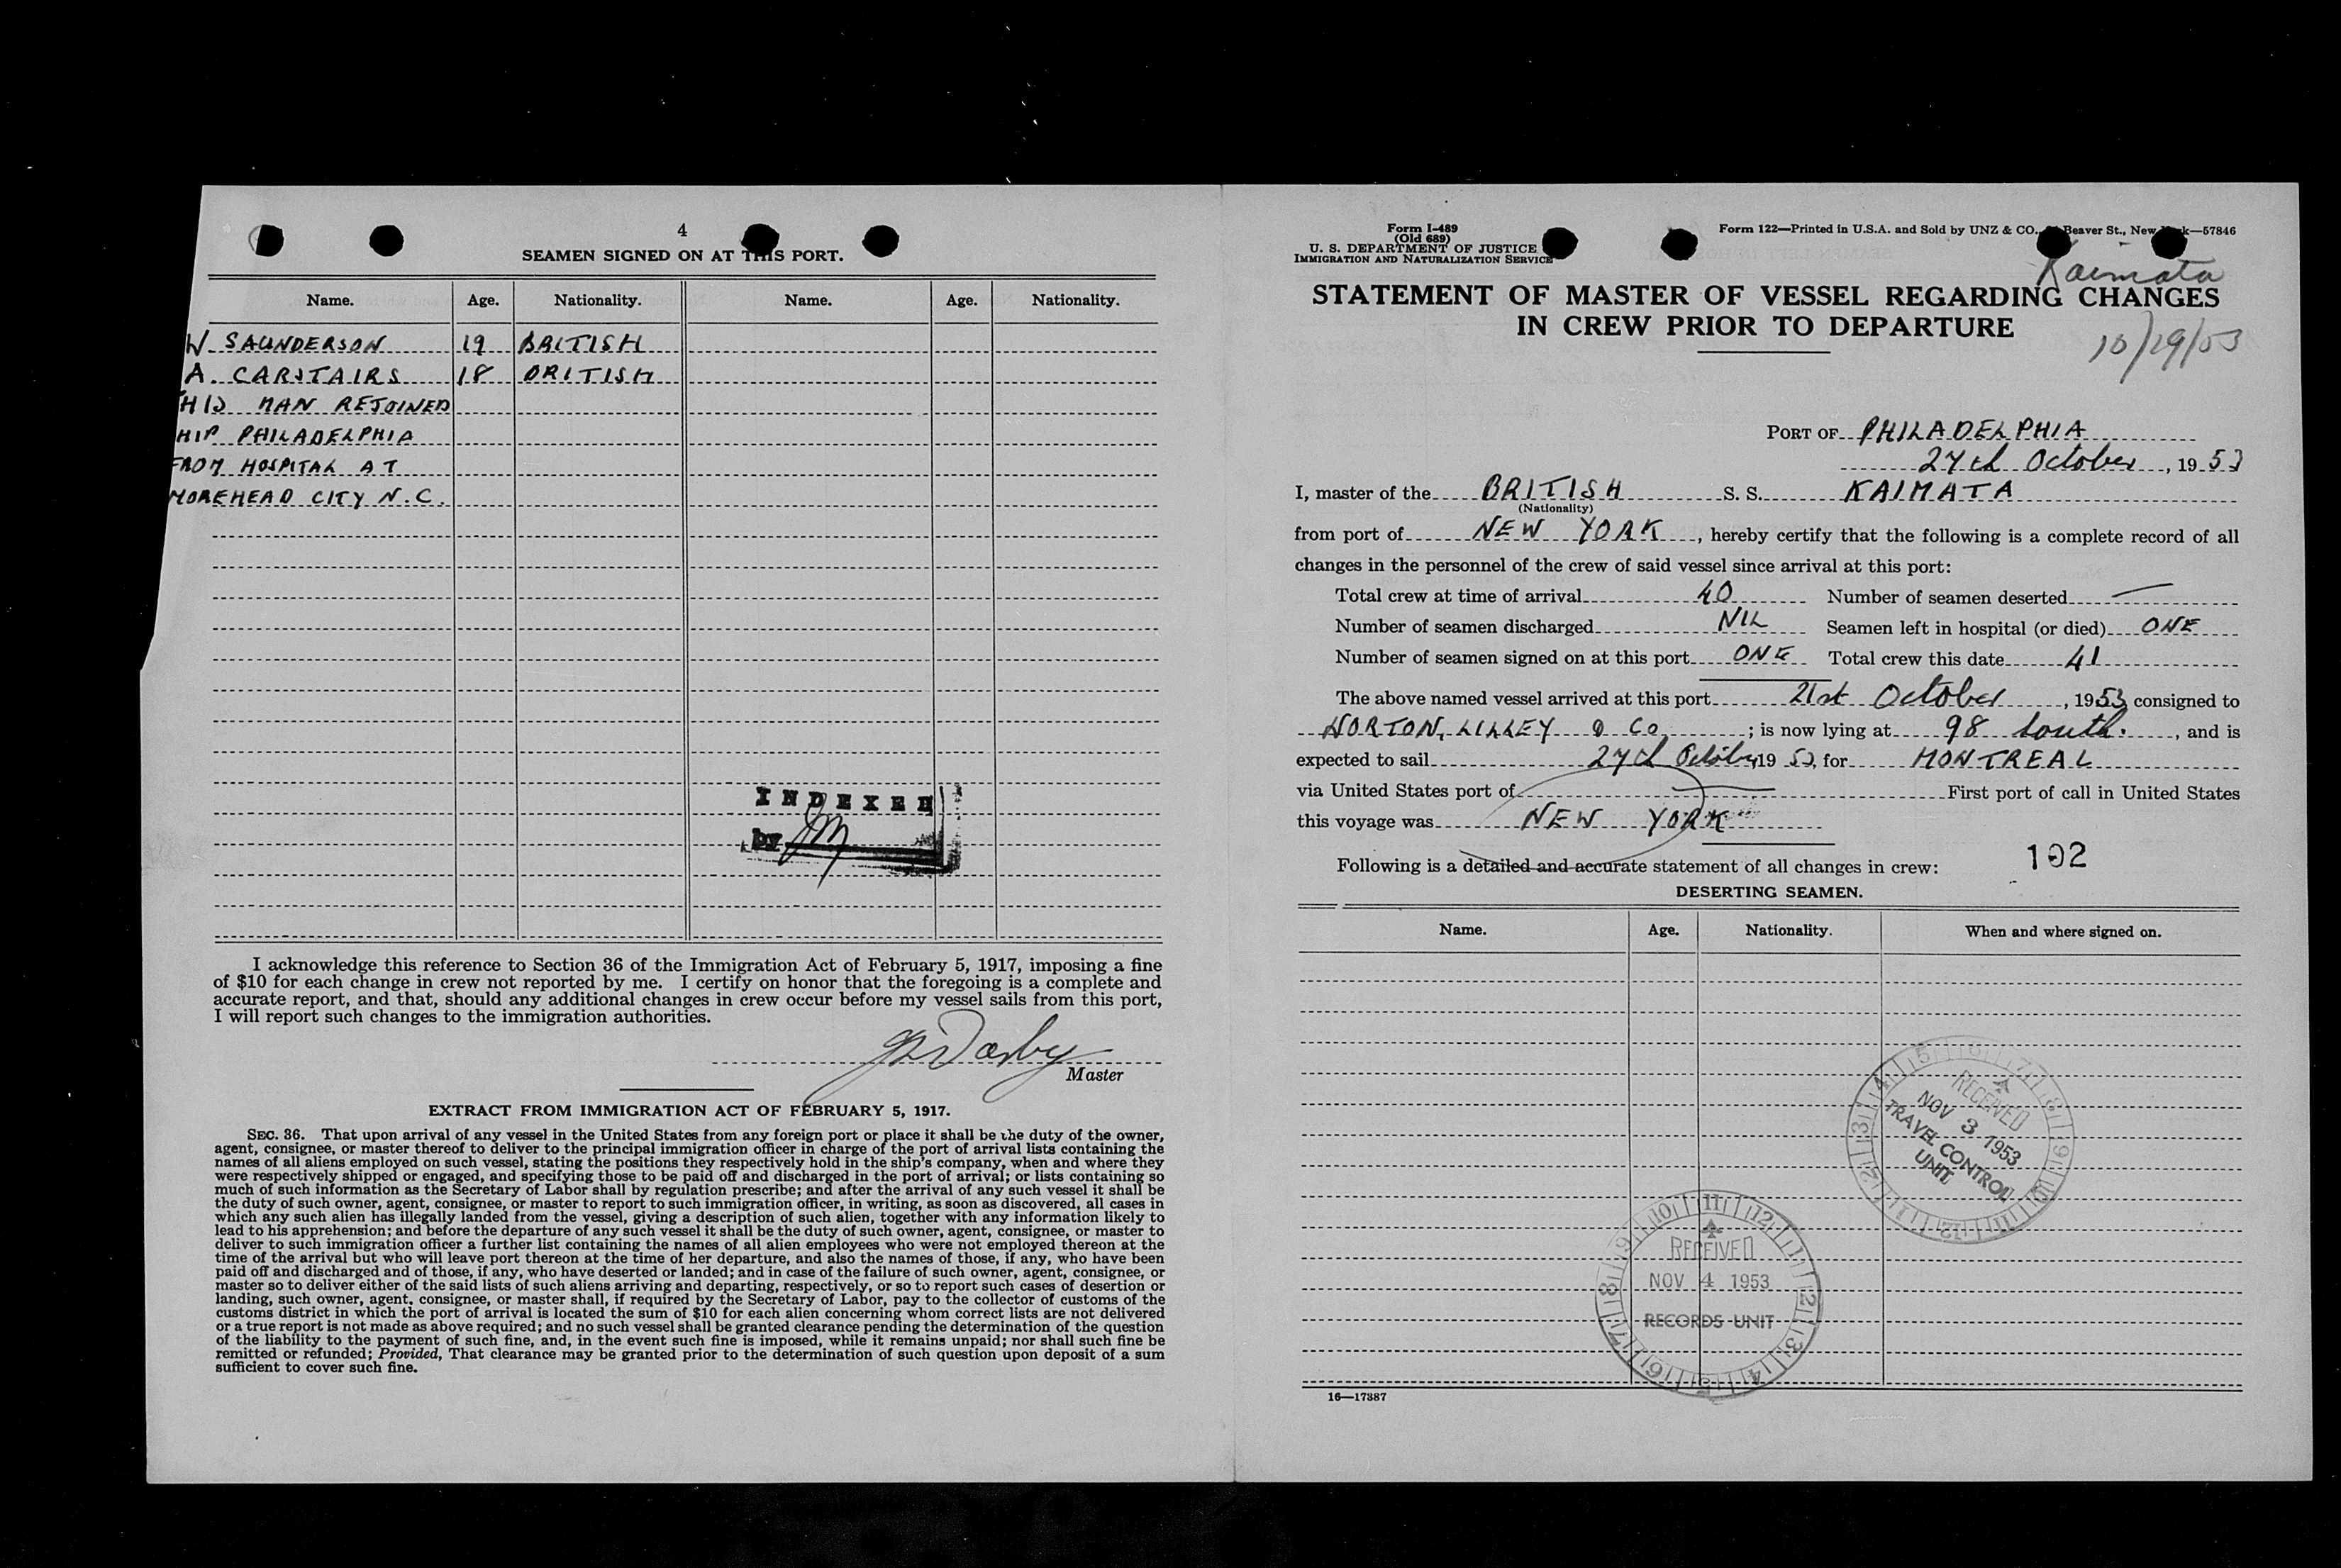 4
SEAMEN SIGNED ON AT THIS PORT.
Name. Age. Nationality. Name. Age. Nationality.
W. SAUNDERSON 19 BRITISH
A. CARSTAIRS 18 BRITISH
HIS MAN REJOINED
HIP PHILADELPHIA
FROM HOSPITAL AT
MOREHEAD CITY N.C.
INDEXED
by JM
I acknowledge this reference to Section 36 of the Immigration Act of February 5, 1917, imposing a fine
of $10 for each change in crew not reported by me. I certify on honor that the foregoing is a complete and
accurate report, and that, should any additional changes in crew occur before my vessel sails from this port,
I will report such changes to the immigration authorities.
Darby
Master
EXTRACT FROM IMMIGRATION ACT OF FEBRUARY 5, 1917.
SEC. 36. That upon arrival of any vessel in the United States from any foreign port or place it shall be the duty of the owner,
agent, consignee, or master thereof to deliver to the principal immigration officer in charge of the port of arrival lists containing the
names of all aliens employed on such vessel, stating the positions they respectively hold in the ship's company, when and where they
were respectively shipped or engaged, and specifying those to be paid off and discharged in the port of arrival; or lists containing so
much of such information as the Secretary of Labor shall by regulation prescribe; and after the arrival of any such vessel it shall be
the duty of such owner, agent, consignee, or master to report to such immigration officer, in writing, as soon as discovered, all cases in
which any such alien has illegally landed from the vessel, giving a description of such alien, together with any information likely to
lead to his apprehension; and before the departure of any such vessel it shall be the duty of such owner, agent, consignee, or master to
deliver to such immigration officer a further list containing the names of all alien employees who were not employed thereon at the
time of the arrival but who will leave port thereon at the time of her departure, and also the names of those, if any, who have been
paid off and discharged and of those, if any, who have deserted or landed; and in case of the failure of such owner, agent, consignee, or
master so to deliver either of the said lists of such aliens arriving and departing, respectively, or so to report such cases of desertion or
landing, such owner, agent, consignee, or master shall, if required by the Secretary of Labor, pay to the collector of customs of the
customs district in which the port of arrival is located the sum of $10 for each alien concerning whom correct lists are not delivered
or a true report is not made as above required; and no such vessel shall be granted clearance pending the determination of the question
of the liability to the payment of such fine, and, in the event such fine is imposed, while it remains unpaid; nor shall such fine be
remitted or refunded; Provided, That clearance may be granted prior to the determination of such question upon deposit of a sum
sufficient to cover such fine.
Form I-489
(Old 689)
U. S. DEPARTMENT OF JUSTICE
IMMIGRATION AND NATURALIZATION SERVICE
Form 122—Printed in U.S.A. and Sold by UNZ & CO., Beaver St., New k—57846
Kaimata
STATEMENT OF MASTER OF VESSEL REGARDING CHANGES
IN CREW PRIOR TO DEPARTURE
10/29/53
PORT OF PHILADELPHIA
27th October, 1953
I, master of the BRITISH S. S. KAIMATA
(Nationality)
from port of NEW YORK, hereby certify that the following is a complete record of all
changes in the personnel of the crew of said vessel since arrival at this port:
Total crew at time of arrival 40 Number of seamen deserted —
Number of seamen discharged NIL Seamen left in hospital (or died) ONE
Number of seamen signed on at this port ONE Total crew this date 41
The above named vessel arrived at this port 21st October, 1953 consigned to
NORTON, LILLEY & Co; is now lying at 98 South., and is
expected to sail 27th October, 1953, for MONTREAL
via United States port of — First port of call in United States
this voyage was NEW YORK
Following is a detailed and accurate statement of all changes in crew:
102
DESERTING SEAMEN.
Name. Age. Nationality. When and where signed on.
RECEIVED
NOV 3 1953
TRAVEL CONTROL
UNIT
RECEIVED
NOV 4 1953
RECORDS UNIT
16—17387